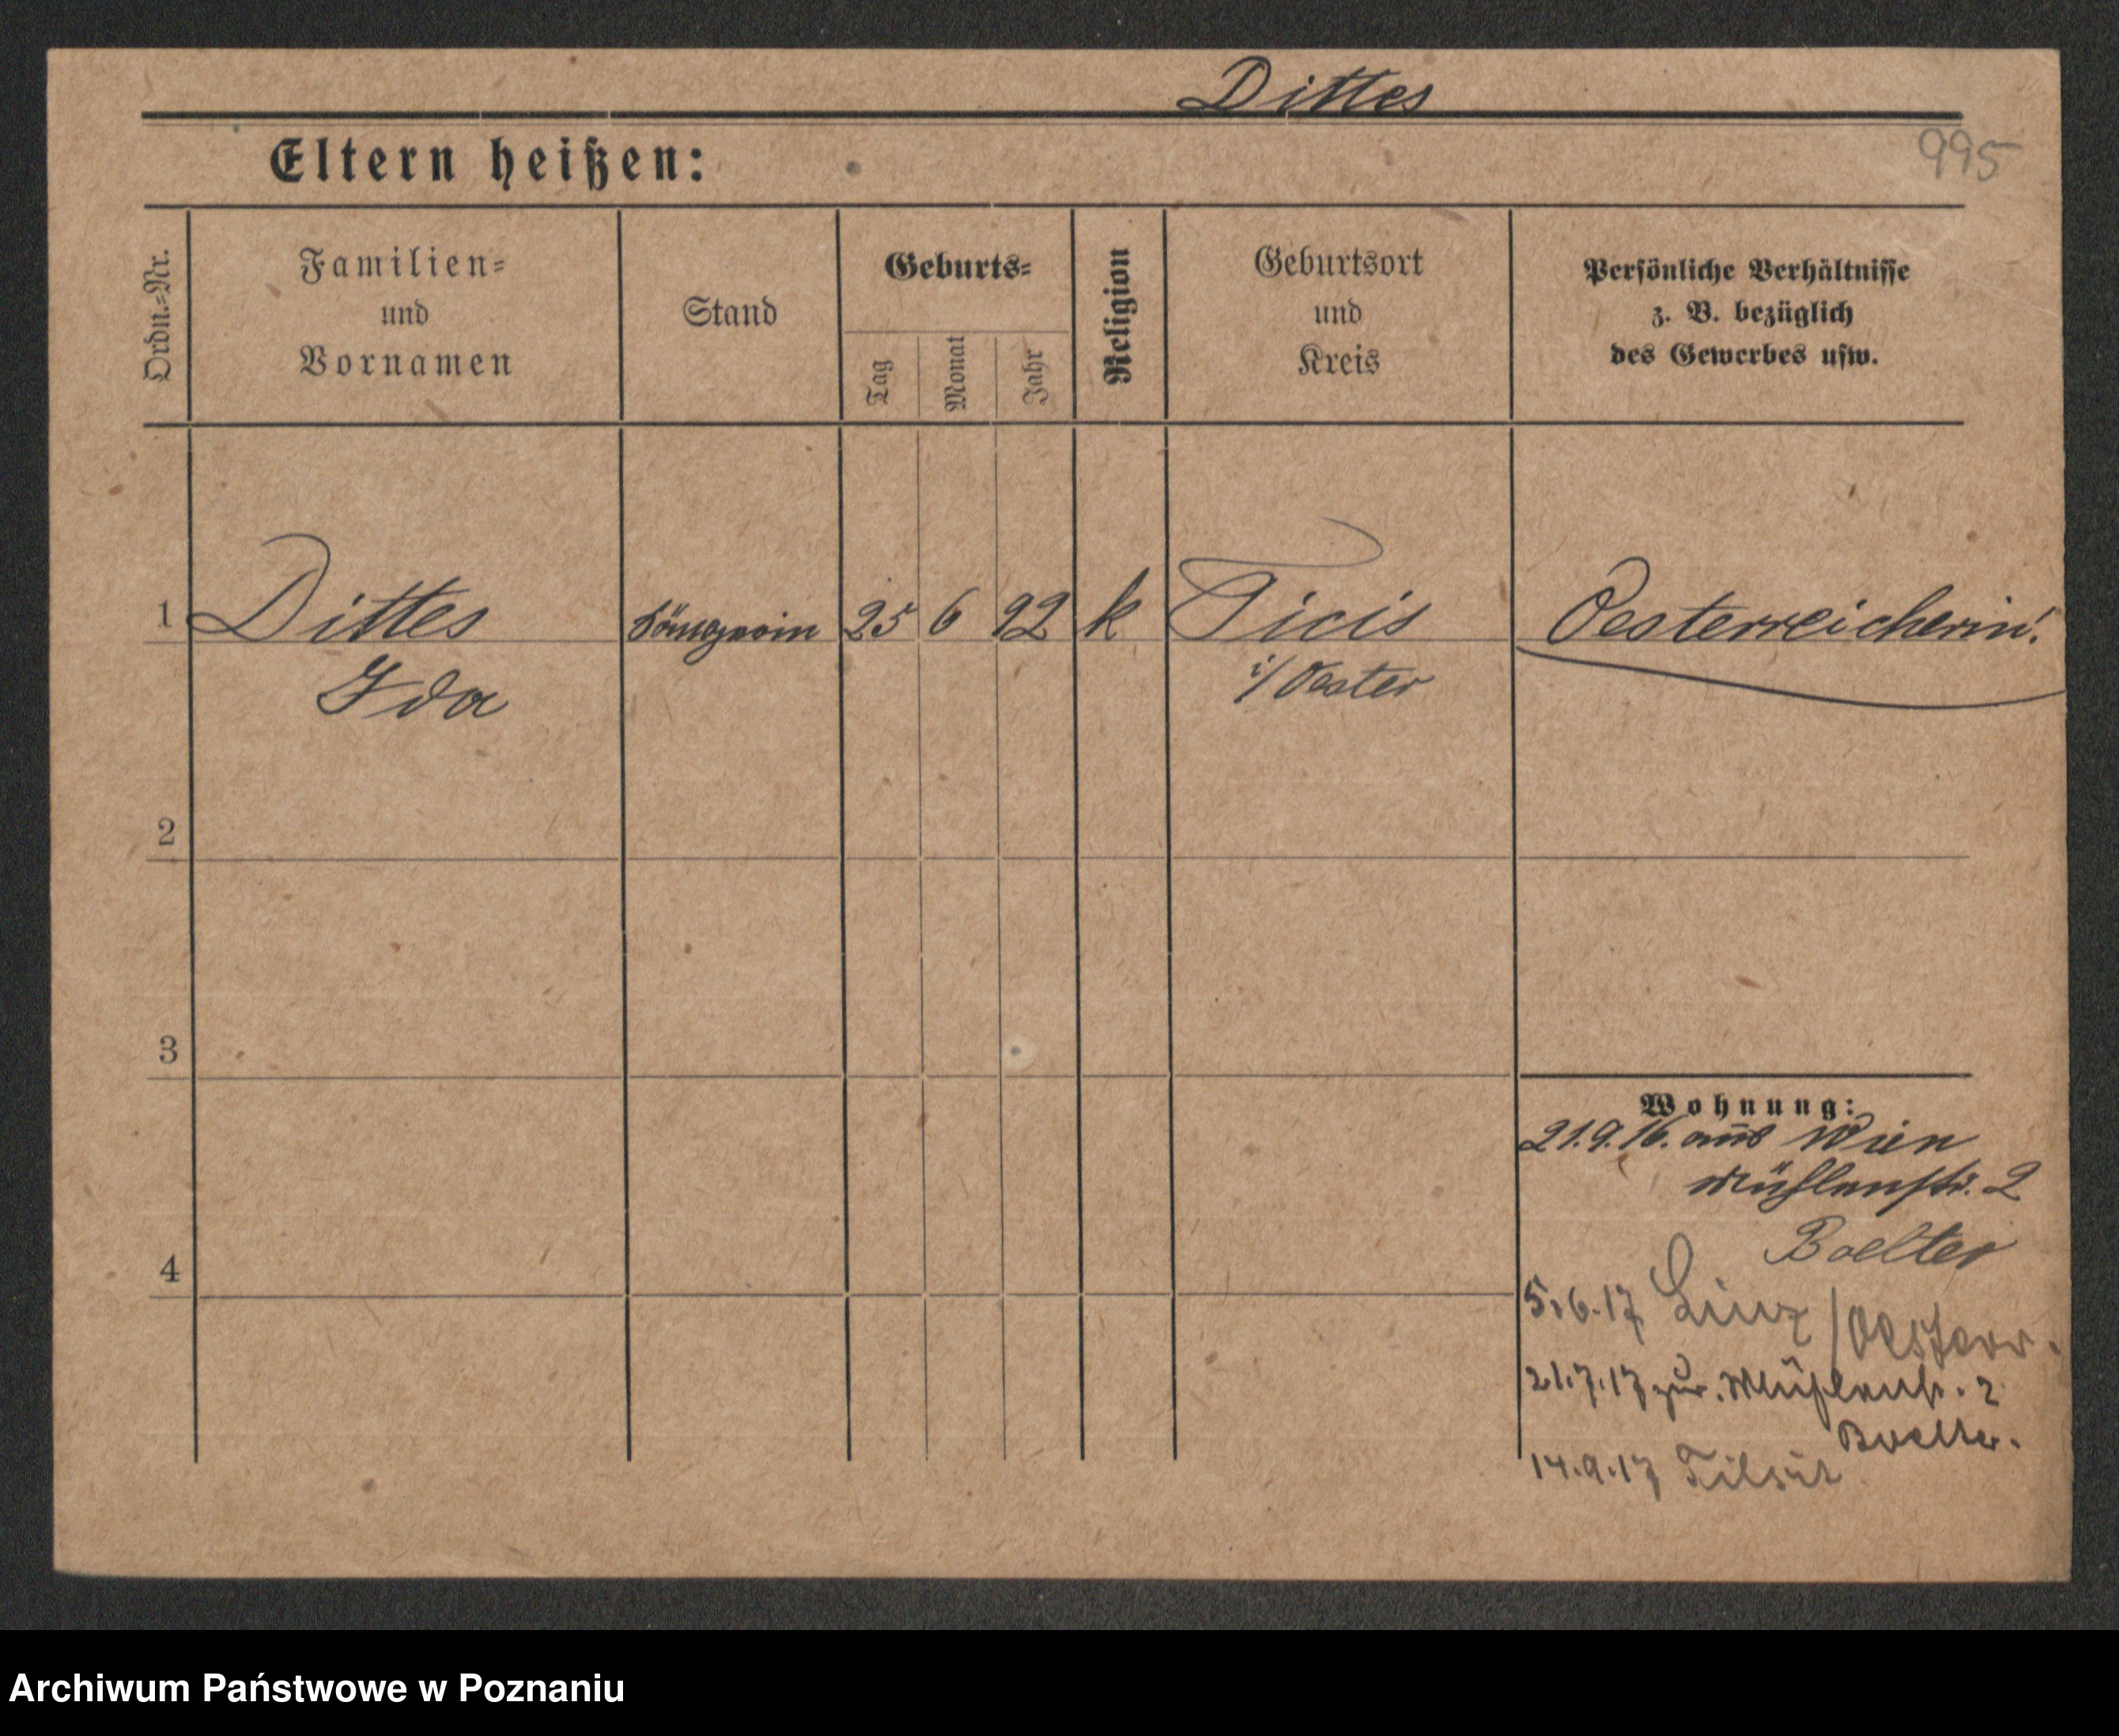 Dittes
995
Eltern heißen:
Ordn.-Nr.
Familien-
und
Vornamen
Stand
Geburts-
Tag
Monat
Jahr
Religion
Geburtsort
und
Kreis
Persönliche Verhältnisse
z. B. bezüglich
des Gewerbes usw.
1 Dittes Sängerin 25 6 92 k Ticis Oesterreicherin!
Ida i/Oester
2
3
4
Wohnung:
21.9.16. aus Wien
Mühlenstr. 2
Boelter
5.6.17 Linz/Oesterr.
21.7.17 zur. Mühlenstr. 2
Boelter.
14.9.17 Tilsit
Archiwum Państwowe w Poznaniu